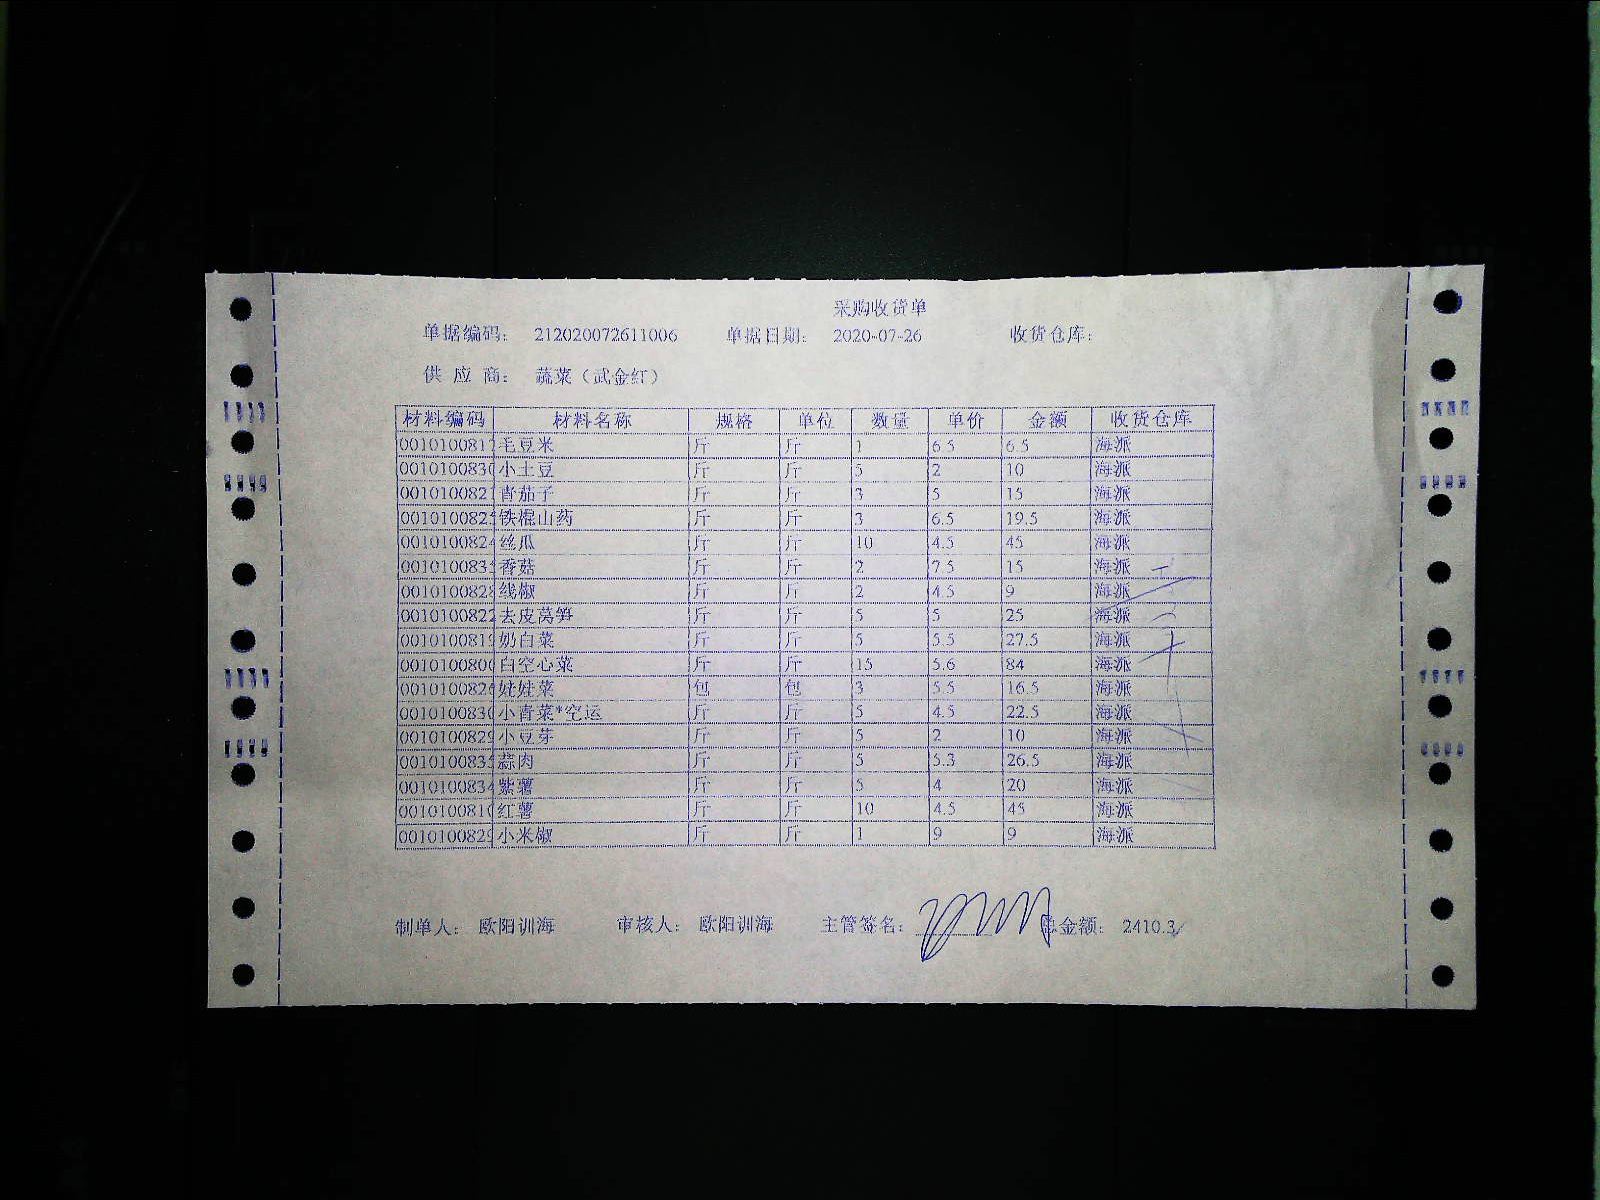 采购收货单
单据编码： 212020072611006 单据日期： 2020-07-26 收货仓库：
供 应 商： 蔬菜（武金红）
材料编码 材料名称 规格 单位 数量 单价 金额 收货仓库
0010100817 毛豆米 斤 斤 1 6.5 6.5 海派
001010083 小土豆 斤 斤 5 2 10 海派
001010082 青茄子 斤 斤 3 5 15 海派
001010082 铁棍山药 斤 斤 3 6.5 19.5 海派
0010100824 丝瓜 斤 斤 10 4.5 45 海派
001010083 香菇 斤 斤 2 7.5 15 海派
001010082 线椒 斤 斤 2 4.5 9 海派
0010100822 去皮莴笋 斤 斤 5 5 25 海派
001010081 奶白菜 斤 斤 5 5.5 27.5 海派
001010080 白空心菜 斤 斤 15 5.6 84 海派
001010082 娃娃菜 包 包 3 5.5 16.5 海派
001010083 小青菜*空运 斤 斤 5 4.5 22.5 海派
001010082 小豆芽 斤 斤 5 2 10 海派
001010083 蒜肉 斤 斤 5 5.3 26.5 海派
0010100834 紫薯 斤 斤 5 4 20 海派
001010081 红薯 斤 斤 10 4.5 45 海派
001010082 小米椒 斤 斤 1 9 9 海派
制单人： 欧阳训海 审核人： 欧阳训海 主管签名： 总金额： 2410.3